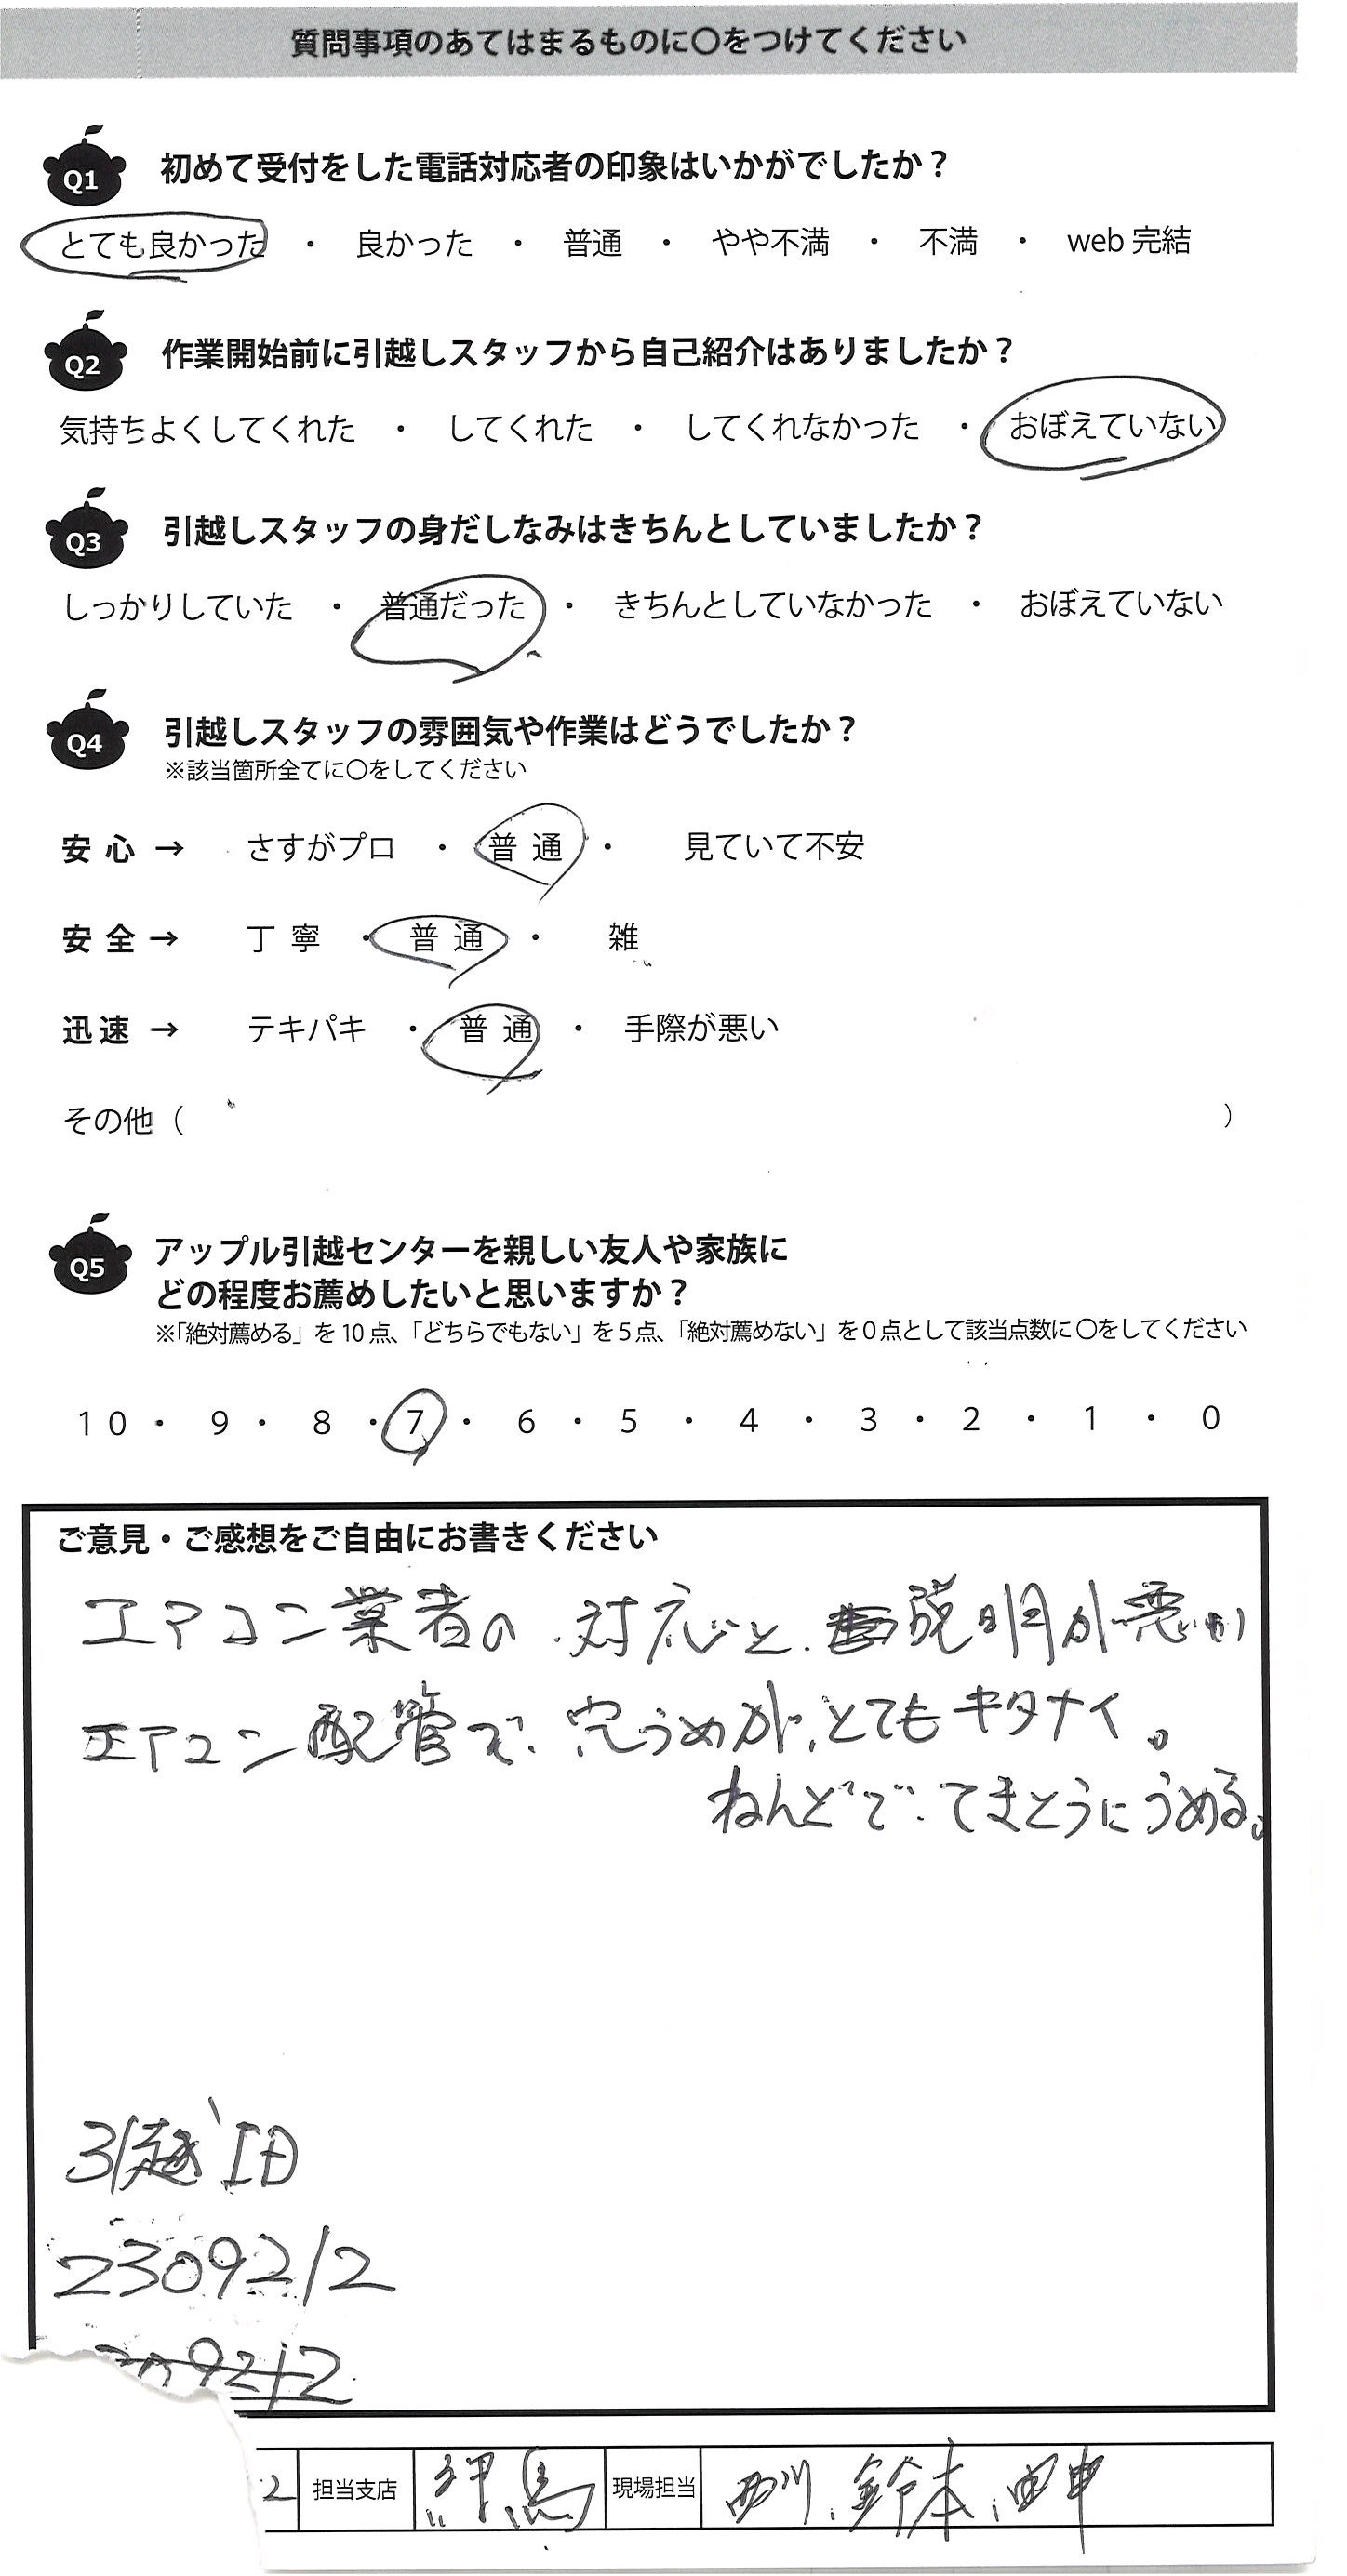 質問事項のあてはまるものに〇をつけてください
Q1 初めて受付をした電話対応者の印象はいかがでしたか？
とても良かった ・ 良かった ・ 普通 ・ やや不満 ・ 不満 ・ web 完結
Q2 作業開始前に引越しスタッフから自己紹介はありましたか？
気持ちよくしてくれた ・ してくれた ・ してくれなかった ・ おぼえていない
Q3 引越しスタッフの身だしなみはきちんとしていましたか？
しっかりしていた ・ 普通だった ・ きちんとしていなかった ・ おぼえていない
Q4 引越しスタッフの雰囲気や作業はどうでしたか？
※該当箇所全てに〇をしてください
安心 → さすがプロ ・ 普通 ・ 見ていて不安
安全 → 丁寧 ・ 普通 ・ 雑
迅速 → テキパキ ・ 普通 ・ 手際が悪い
その他（ ）
Q5 アップル引越センターを親しい友人や家族に
どの程度お薦めしたいと思いますか？
※「絶対薦める」を10点、「どちらでもない」を5点、「絶対薦めない」を0点として該当点数に〇をしてください
10 ・ 9 ・ 8 ・ 7 ・ 6 ・ 5 ・ 4 ・ 3 ・ 2 ・ 1 ・ 0
ご意見・ご感想をご自由にお書きください
エアコン業者の対応と、説明が悪い
エアコン配管で、穴うめが、とてもキタナイ。
ねんどで、てきとうにうめる。
引越ID
2309212
09212
2 担当支店 練馬 現場担当 鈴本、